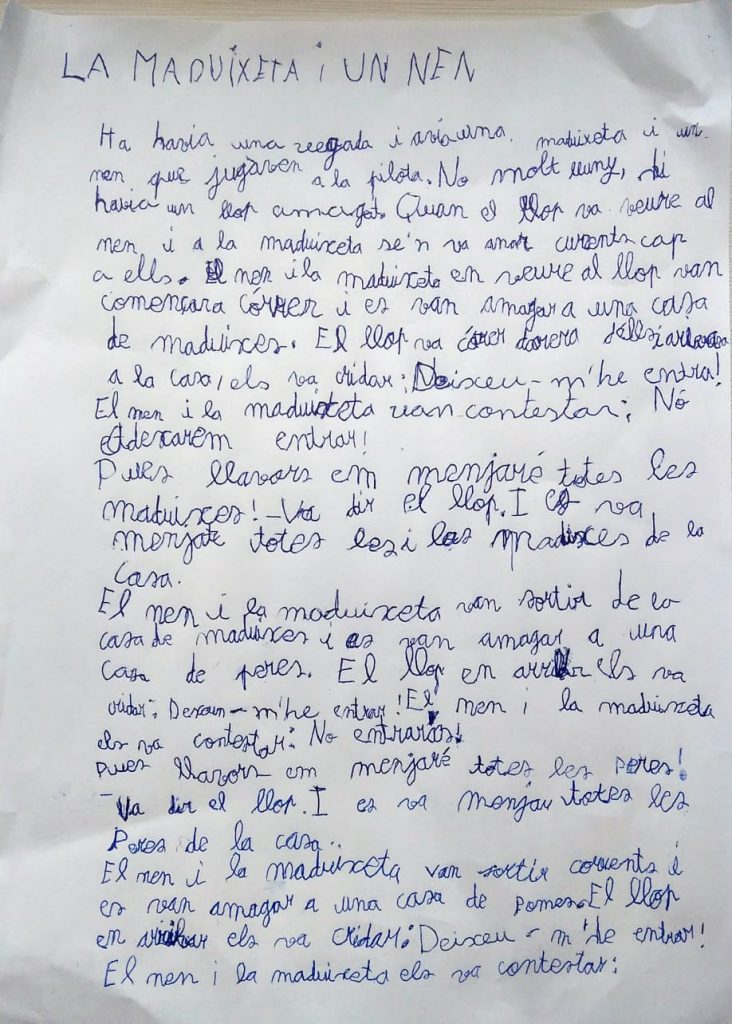 LA MADUIXETA i UN NEN
Ha havia una vegada i avia una maduixeta i un
nen que jugaven a la pilota. No molt lluny, hi
havia un llop amagat. Quan el llop va veure al
nen i a la maduixeta se'n va anar curents cap
a ells. El nen i la maduixeta en veure al llop van
començar a córrer i es van amagar a una casa
de maduixes. El llop va córrer darera d'ells i
a la casa, els va cridar: Deixeu-m'he entrar!
El nen i la maduixeta van contestar: Nó
entrar!
Pues llavors em menjaré totes les
maduixes! -Va dir el llop. I es va
menjar totes les i las maduixes de la
casa.
El nen i la maduixeta van sortir de la
casa de maduixes i es van amagar a una
casa de peres. El llop en arribar els va
cridar: Dexeu-m'he entrar! El nen i la maduixeta
els va contestar: No entraràs!
Pues llavors em menjaré totes les peres!
-Va dir el llop. I es va menjar totes les
Peres de la casa..
El nen i la maduixeta van sortir corrents i
es van amagar a una casa de pomes. El llop
en arribar els va cridar: Deixeu-m'he entrar!
El nen i la maduixeta els va contestar: